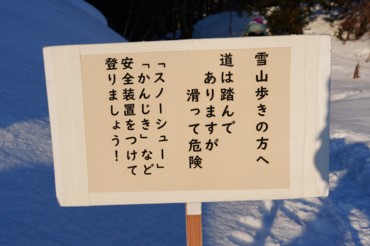 雪山歩きの方へ
道は踏んで
ありますが
滑って危険
「スノーシュー」
「かんじき」など
安全装置をつけて
登りましょう！